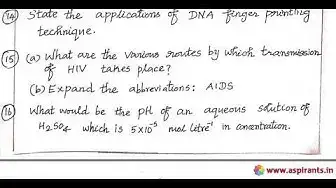 14 State the applications of DNA finger printing
technique.
15 (a) What are the various routes by which transmission
of HIV takes place?
(b) Expand the abbreviations: AIDS
16 What would be the pH of an aqueous solution of
H₂SO₄ which is 5×10⁻⁵ mol litre⁻¹ in concentration.
www.aspirants.in